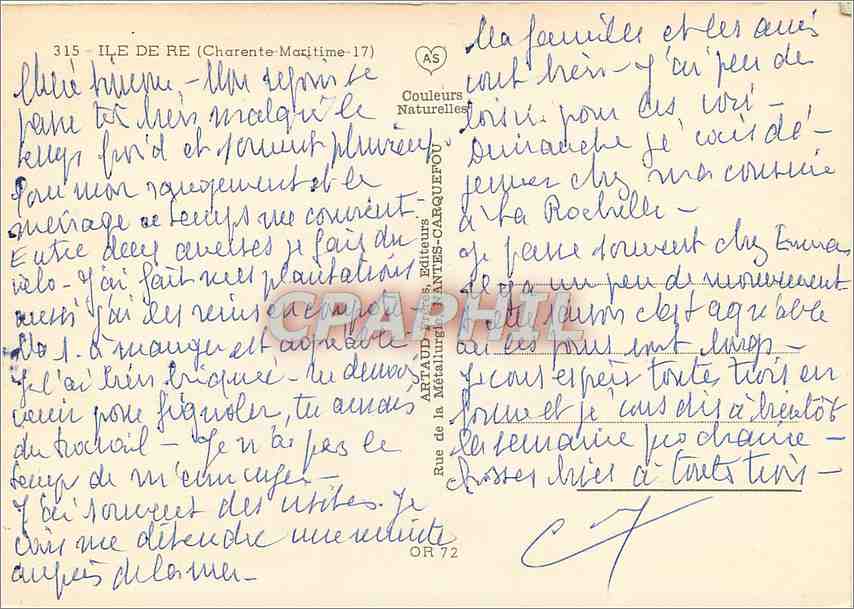 315 - ILE DE RE (Charente-Maritime-17)
AS
Couleurs
Naturelles
ARTAUD Frères, Editeurs
Rue de la Métallurgie NANTES-CARQUEFOU
OR 72
CPAPHIL
Mon séjour se
passe très bien malgré le
temps froid et souvent pluvieux
Pour mon rangement et le
ménage ce temps me convient -
Entre deux averses je fais du
vélo - J'ai fait mes plantations
aussi j'ai les reins en compote -
La s. à manger est agréable
Je l'ai bien briquée - tu devrais
venir pour fignoler, tu aurais
du travail - Je n'ai pas le
temps de m'ennuyer -
J'ai souvent des visites. Je
vais me détendre une minute
auprès de la mer -
Ma famille et les amis
vont bien - J'ai peu de
loisir pour les voir -
Dimanche je vais dé-
jeuner chez ma cousine
à La Rochelle -
Je passe souvent chez Emma
il y a un peu de mouvement
Cette saison c'est agréable
car les jours sont longs -
Je vous espère toutes trois en
forme et je vous dis à bientôt
la semaine prochaine -
Grosses bises à toutes trois -